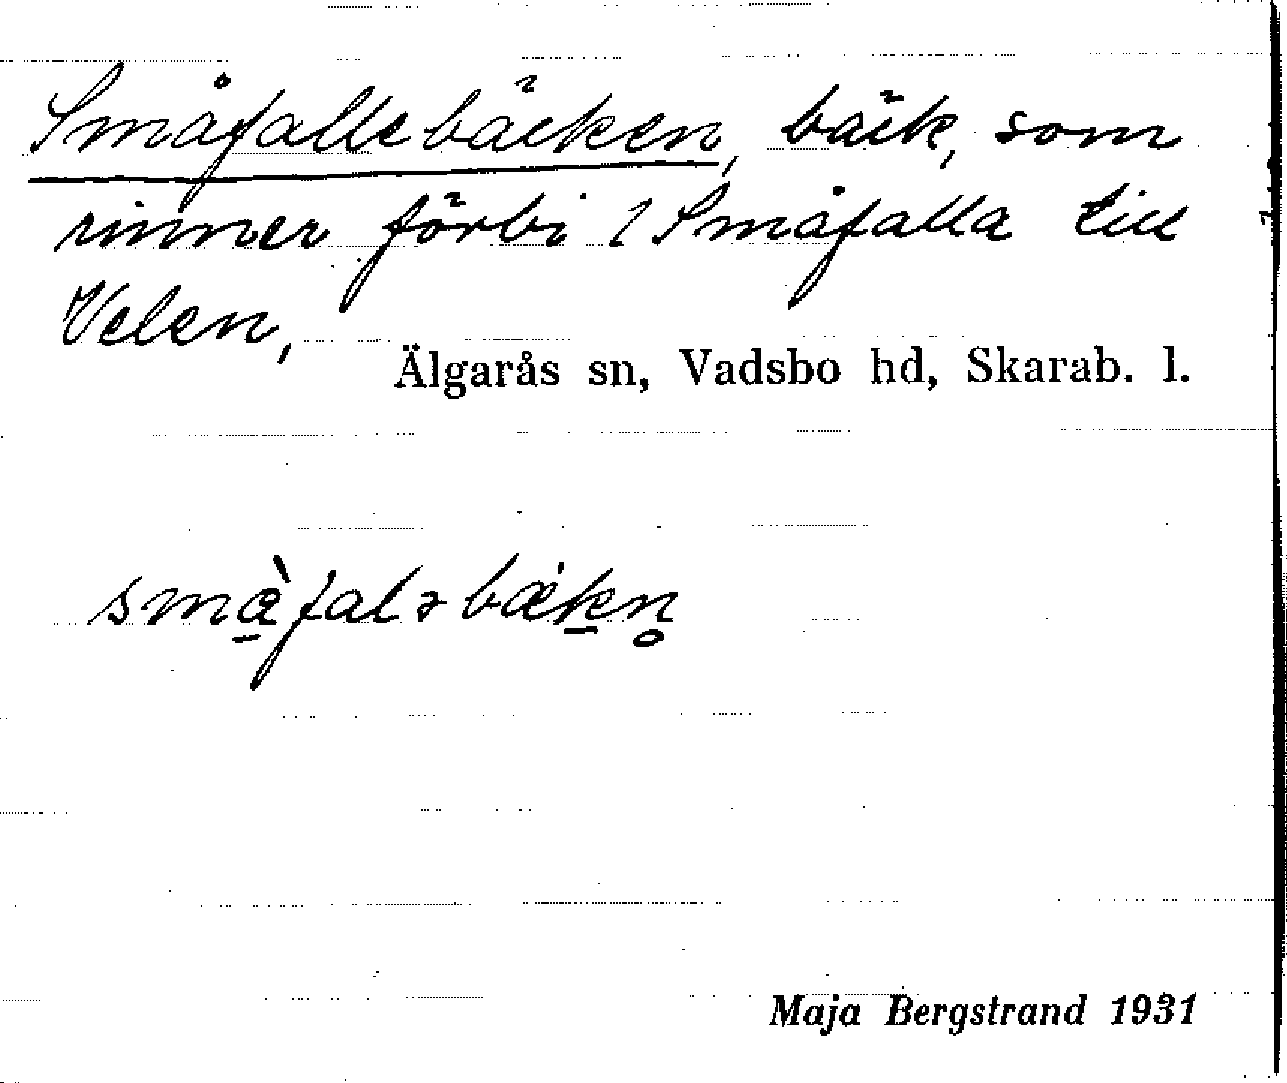 Småfallebäcken, bäck, som
rinner förbi 1 Småfalla till
Velen,
Älgarås sn, Vadsbo hd, Skarab. l.
små̀faləbäkn̥
Maja Bergstrand 1931